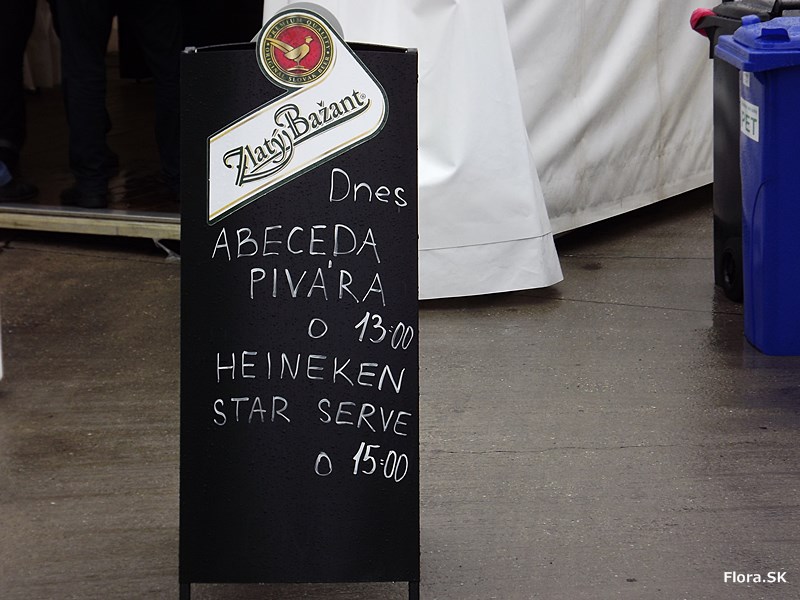 Zlatý Bažant®
Dnes
ABECEDA
PIVÁRA
O 13:00
HEINEKEN
STAR SERVE
O 15:00
PET
Flora.SK